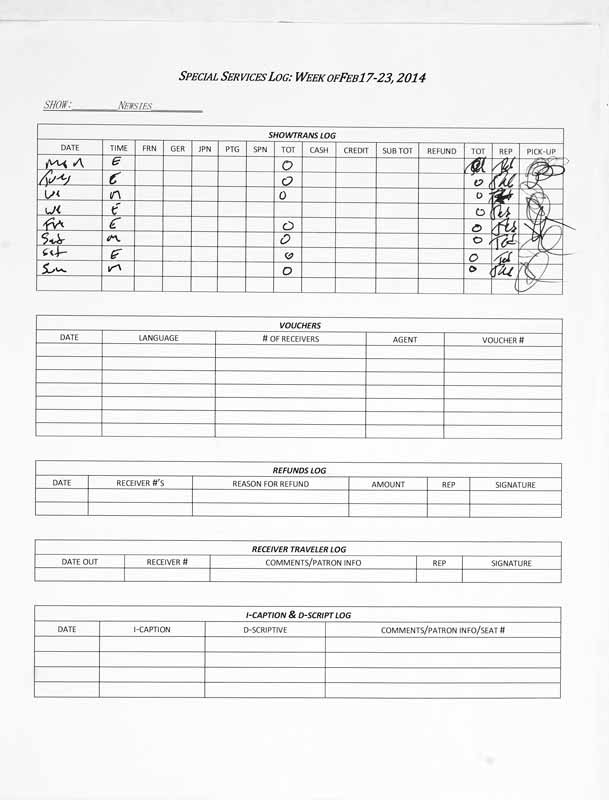 SPECIAL SERVICES LOG: WEEK OF FEB 17-23, 2014
SHOW: NEWSIES
SHOWTRANS LOG
DATE TIME FRN GER JPN PTG SPN TOT CASH CREDIT SUB TOT REFUND TOT REP PICK-UP
Mon E 0
Tues E 0 0
We M 0 0
We E 0
Fri E 0 0
Sat M 0 0
Sat E 0 0
Sun M 0 0
VOUCHERS
DATE LANGUAGE # OF RECEIVERS AGENT VOUCHER #
REFUNDS LOG
DATE RECEIVER #'S REASON FOR REFUND AMOUNT REP SIGNATURE
RECEIVER TRAVELER LOG
DATE OUT RECEIVER # COMMENTS/PATRON INFO REP SIGNATURE
I-CAPTION & D-SCRIPT LOG
DATE I-CAPTION D-SCRIPTIVE COMMENTS/PATRON INFO/SEAT #